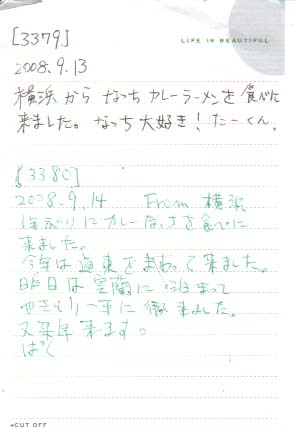 [3379]
LIFE IS BEAUTIFUL
2008.9.13
横浜から なっち カレーラーメンを 食べに
来ました。なっち 大好き! たーくん.
[3380]
2008.9.14 From 横浜
1年ぶりにカレーなっちを食べに
来ました。
今年は道東をまわって来ました。
昨日は室蘭に泊まって
やきとり一平に 来ました。
又来年来ます。
CUT OFF